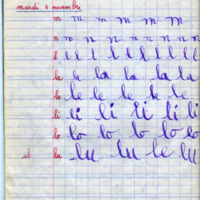 mardi 5 novembre
m m m m m m
n n n n n n n n n
l l l l l l l l l
la le la la la la
le le le le le le
li li li li li li
lo lo lo lo lo lo
al lu lu lu le lu